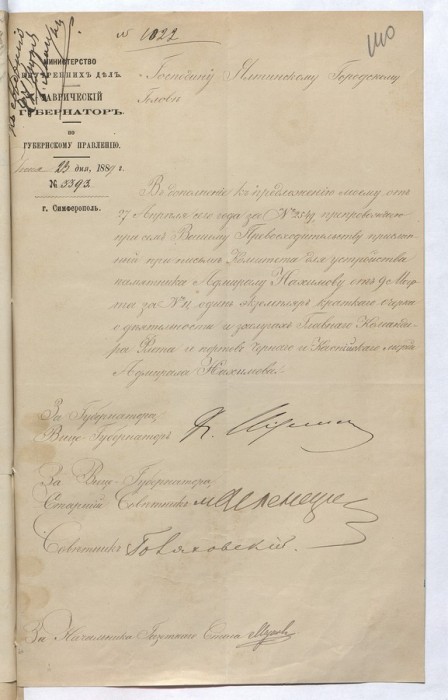 № 1022
110
МИНИСТЕРСТВО
ВНУТРЕННИХЪ ДѢЛЪ.
ТАВРИЧЕСКІЙ
ГУБЕРНАТОРЪ.
ПО
ГУБЕРНСКОМУ ПРАВЛЕНІЮ.
23 дня, 1889 г.
№ 3393
г. Симферополь.
Господину Ялтинскому Городскому
Головѣ
Въ дополненіе къ предложенію моему отъ
27 Апрѣля сего года за № 2549, препровождаю
при семъ Вашему Превосходительству прислан-
ный при письмѣ Комитета для устройства
памятника Адмиралу Нахимову отъ 9 Мар-
та за № 11 одинъ экземпляръ краткаго очерка
о дѣятельности и заслугахъ Главнаго Команди-
ра Флота и портовъ Чернаго и Каспійскаго морей
Адмирала Нахимова.
За Губернатора,
Вице-Губернаторъ
За Вице-Губернатора,
Старшій Совѣтникъ
Совѣтникъ Говяховскій.
За Начальника Газетнаго Стола